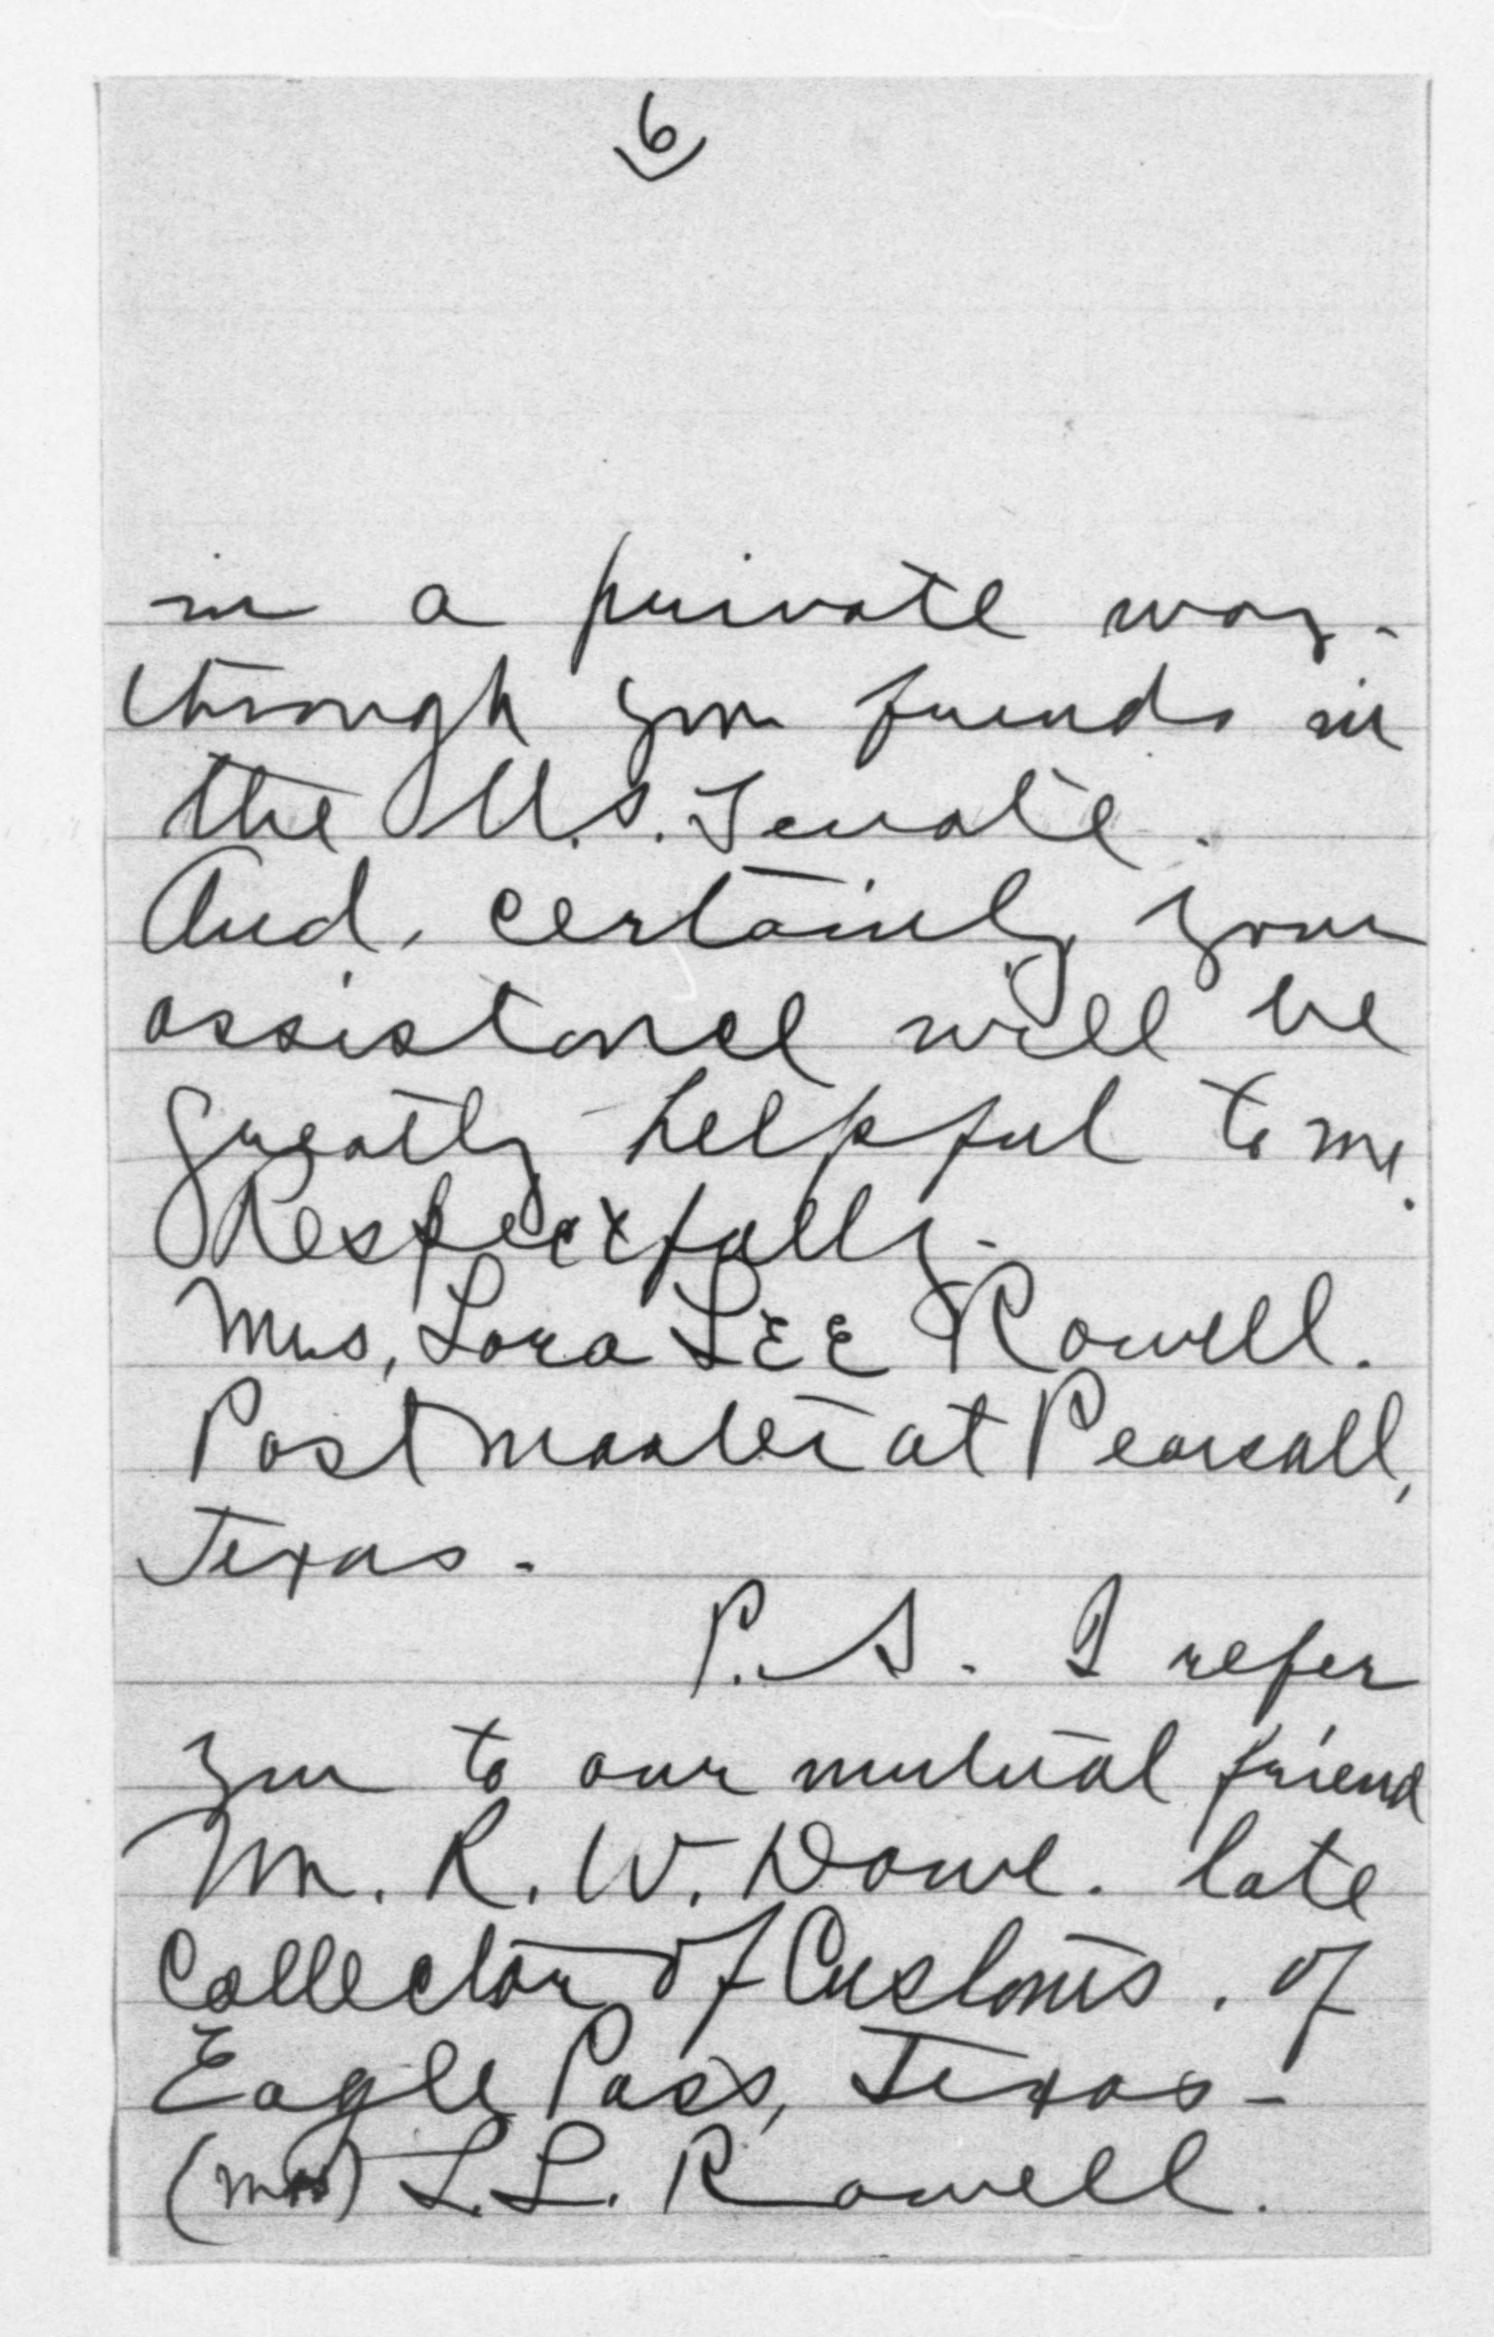 6
in a private way-
through your friends in
the U.S. Senate.
And, certainly your
assistance will be
greatly helpful to me.
Respectfully-
Mrs, Lora LEE Rowell.
Postmaster at Pearsall,
Texas-
P.S. I refer
you to our mutual friend
Mr. R. W. Dowe. late
Collector of Customs. of
Eagle Pass, Texas-
(Mrs) L.L. Rowell.